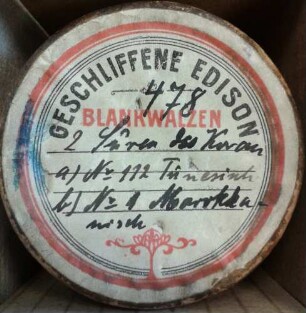 GESCHLIFFENE EDISON
478
BLANKWALZEN
2 Suren des Koran
a) No 112 Tunesisch
b) No 1 Marokka-
nisch